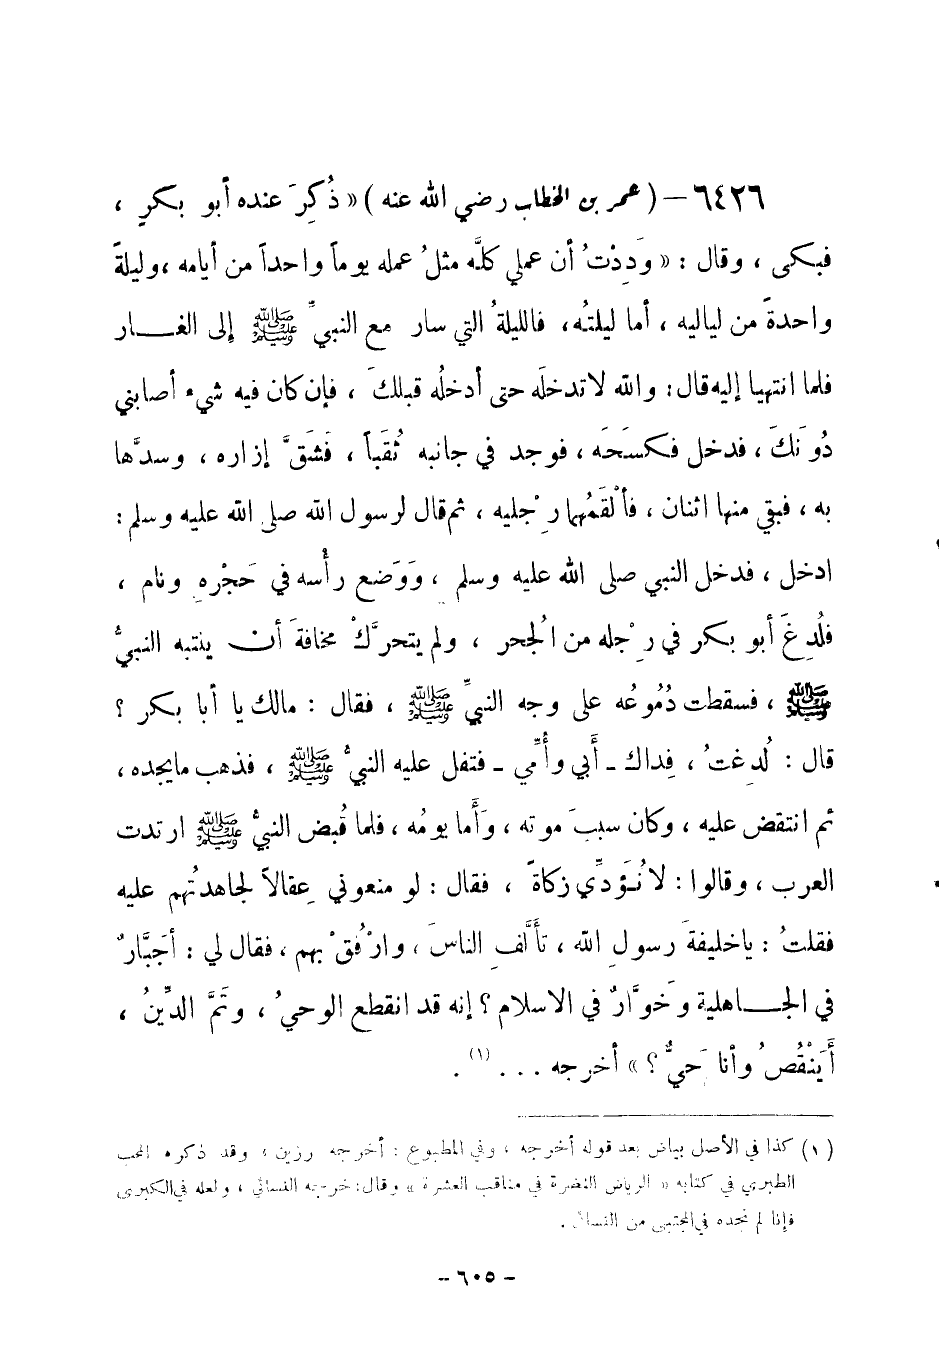 ٦٤٢٦ – ( عمر بن الخطاب رضي الله عنه ) « ذُكِرَ عنده أبو بكرٍ ،
فبكى ، وقال : « وَدِدْتُ أن عملي كلَّه مثلُ عمله يوماً واحداً من أيامه ، وليلةً
واحدةً من لياليه ، أما ليلتُه ، فالليلةُ التي سار مع النبيِّ ﷺ إلى الغــار
فلما انتهيا إليه قال : والله لا تدخلَه حتى أدخلُه قبلكَ ، فإن كان فيه شيء أصابني
دُونَكَ ، فدخل فكسَحَه ، فوجد في جانبه ثُقَباً ، فَشَقَّ إزاره ، وسدَّها
به ، فبقي منها اثنان ، فألْقَمَهُما رِجْليه ، ثم قال لرسول الله صلى الله عليه وسلم :
ادخل ، فدخل النبي صلى الله عليه وسلم ، وَوَضع رأْسه في حَجْرِه ونام ،
فلُدِغَ أبو بكر في رِجْله من الْجحر ، ولم يتحرَّكْ مخافةَ أن ينتبه النبيُّ
ﷺ ، فسقطت دُمُوعُه على وجه النبيِّ ﷺ ، فقال : مالك يا أبا بكر ؟
قال : لُدِغتُ ، فِداك ـ أَبي وأُمِّي ـ فتفل عليه النبيُّ ﷺ ، فذهب ما يجده ،
ثم انتقض عليه ، وكان سببَ موته ، وَأَما يومُه ، فلما قُبض النبيُّ ﷺ ارتدت
العرب ، وقالوا : لا نُؤَدِّي زكاةً ، فقال : لو منعوني عِقالاً لجاهدتُهم عليه
فقلتُ : يا خليفةَ رسولِ الله ، تأَلَّفِ الناسَ ، وارْفُقْ بهم ، فقال لي : أجَبَّارٌ
في الجــاهلية وَخوَّارٌ في الاسلام ؟ إنه قد انقطع الوحيُ ، وتَمَّ الدِّينُ ،
أَيَنْقُصُ وأنا حَيٌّ ؟ » أخرجه . . . (١) .
(١) كذا في الأصل بياض بعد قوله أخرجه ، وفي المطبوع : أخرجه رزين ، وقد ذكره المحب
الطبري في كتابه « الرياض النضرة في مناقب العشرة » وقال : خرجه النسائي ، ولعله في الكبرى
فإنا لم نجده في المجتبى من النسائي .
– ٦٠٥ –